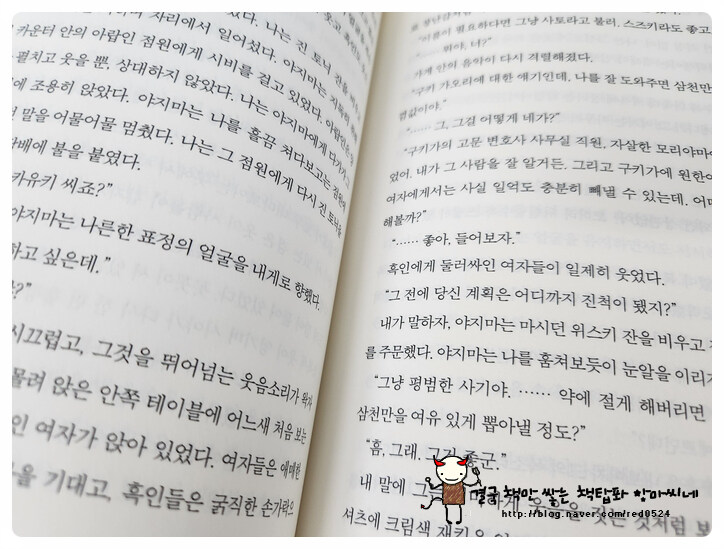 자리에서 일어섰다. 나는 진 토닉 잔을
카운터 안의 아랍인 점원에게 시비를 걸고 있었다.
펼치고 웃을 뿐, 상대하지 않았다. 나는 야지마에게 다가가
에 조용히 앉았다. 야지마는 나를 흘끔 쳐다보고는 점원
말을 어물어물 멈췄다. 나는 그 점원에게 다시 진 토닉을
담배에 불을 붙였다.
카유키 씨죠?"
야지마는 나른한 표정의 얼굴을 내게로 향했다.
하고 싶은데."
시끄럽고, 그것을 뛰어넘는 웃음소리가 왁자
몰려 앉은 안쪽 테이블에 어느새 처음 보는
인 여자가 앉아 있었다. 여자들은 애매한
을 기대고, 흑인들은 굵직한 손가락으
필요하다면 그냥 사토라고 불러. 스즈키라도 좋고
"…… 뭐야, 너?"
가게 안의 음악이 다시 격렬해졌다.
"구키 가오리에 대한 얘기인데, 나를 잘 도와주면 삼천만
"…… 그, 그걸 어떻게 네가?"
"구키가의 고문 변호사 사무실 직원, 자살한 모리야마
었어. 내가 그 사람을 잘 알거든. 그리고 구키가에 원한이
여자에게서는 사실 일억도 충분히 빼낼 수 있는데. 어
해볼까?"
"…… 좋아, 들어보자."
흑인에게 둘러싸인 여자들이 일제히 웃었다.
"그 전에 당신 계획은 어디까지 진척이 됐지?"
내가 말하자, 야지마는 마시던 위스키 잔을 비우고
를 주문했다. 야지마는 나를 훔쳐보듯이 눈알을 이리
"그냥 평범한 사기야. …… 약에 절게 해버리면
삼천만을 여유 있게 뽑아낼 정도?"
"흠, 그래. 그건
내 말에 그는 웃음을 짓는 것처럼 보
셔츠에 크림색 재킷을
멸균 책만 쌓는 책탑파 항마씨네
http://blog.naver.com/red0524